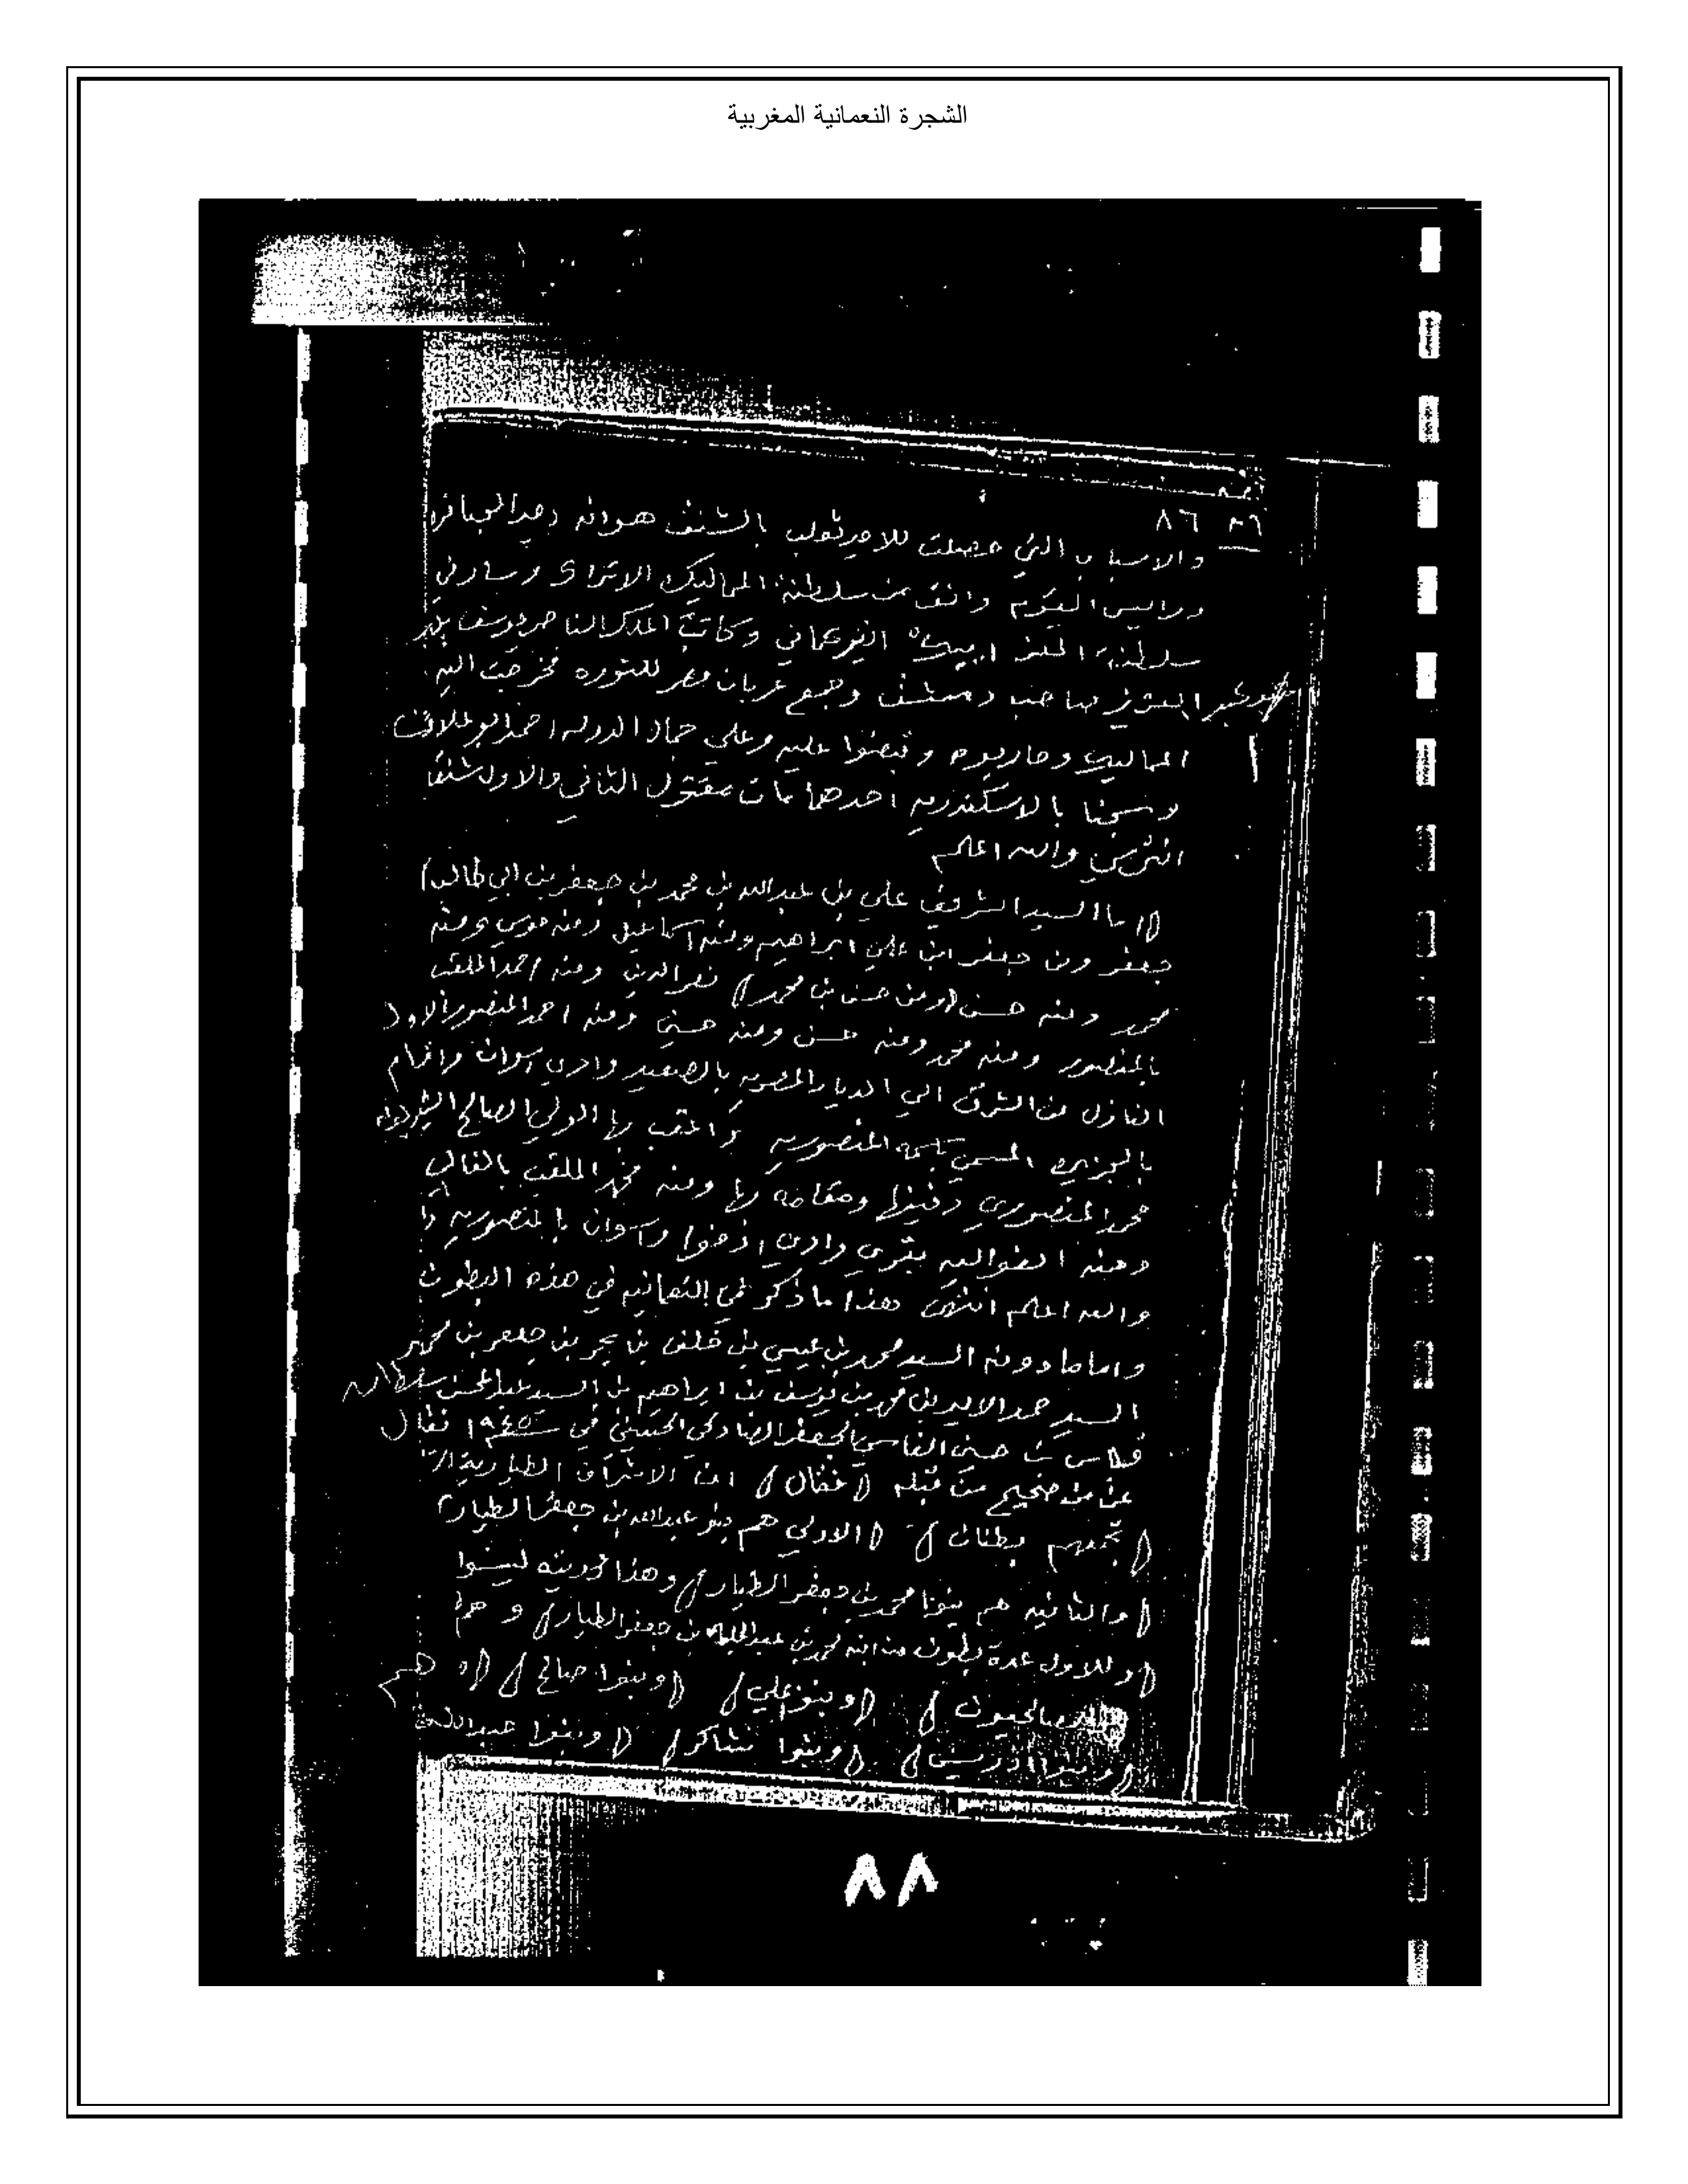 الشجرة النعمانية المغربية
٨٦
والاسباب التي حصلت للامير ثعلب بالشنق هو انه وجد الجبائره
ورايس القوم وانف من سلطنة المماليك الاتراك وسار في
سلطنة المعز ايبك التركماني وكاتب الملك الناصر يوسف
صاحب دمشق وجمع عربان مصر للثوره فخرجت اليه
المماليك وحاربوه وقبضوا عليه وعلي
وسجنا بالاسكندريه احدهما مات مقتول الثاني والاول شنقا
انتهي والله اعلم
(اما السيد الشريف علي بن عبدالله بن محمد بن جعفر بن ابي طالب)
جعفر ومن جعفر ابن علي ابراهيم ومنه اسماعيل ومنه موسي ومنه
محمد ومنه حسن (ومن حسن بن محمد) نصرالدين ومنه احمد الملقب
بالمنصور ومنه محمد ومنه حسن ومنه حسين ومنه احمد المنصور الاول
النازل من الشرق الي الديار المصريه بالصعيد وادي اسوان واقام
بالجزيره المسمي باسمه المنصوريه واعقب بها الولي الصالح
محمد المنصوري دفينها ومقامه بها ومنه محمد الملقب بالغالي
ومنه الغواليه بقري وادي ادفوا واسوان بالمنصوريه
والله اعلم انتهي هذا ما ذكر في النعمانيه في هذه البطون
واما ما دونه السيد محمد بن عيسي بن خلف بن بحر بن جعفر بن محمد
السيد بن محمد بن يوسف بن ابراهيم بن السيد سلطان
فاس بن حسن الفاسي الجعفر الصادقي الحسيني في سنة نقال
عن من قبله (فقال) ان الاشراف الطياريه
(تجمعهم بطنان) (الاولي هم بنو عبدالله بن جعفر الطيار)
(والثانيه هم بنوا محمد بن جعفر الطيار) وهذا ذريته ليسوا
(وللاول عدة بطون من ابنه محمد بن بن جعفر الطيار) وهم
الصالحيون) (وبنو علي) (وبنوا صالح) (وهم
(وبنوا ادريس) (وبنوا شاكر) (وبنوا عبدالله
٨٨